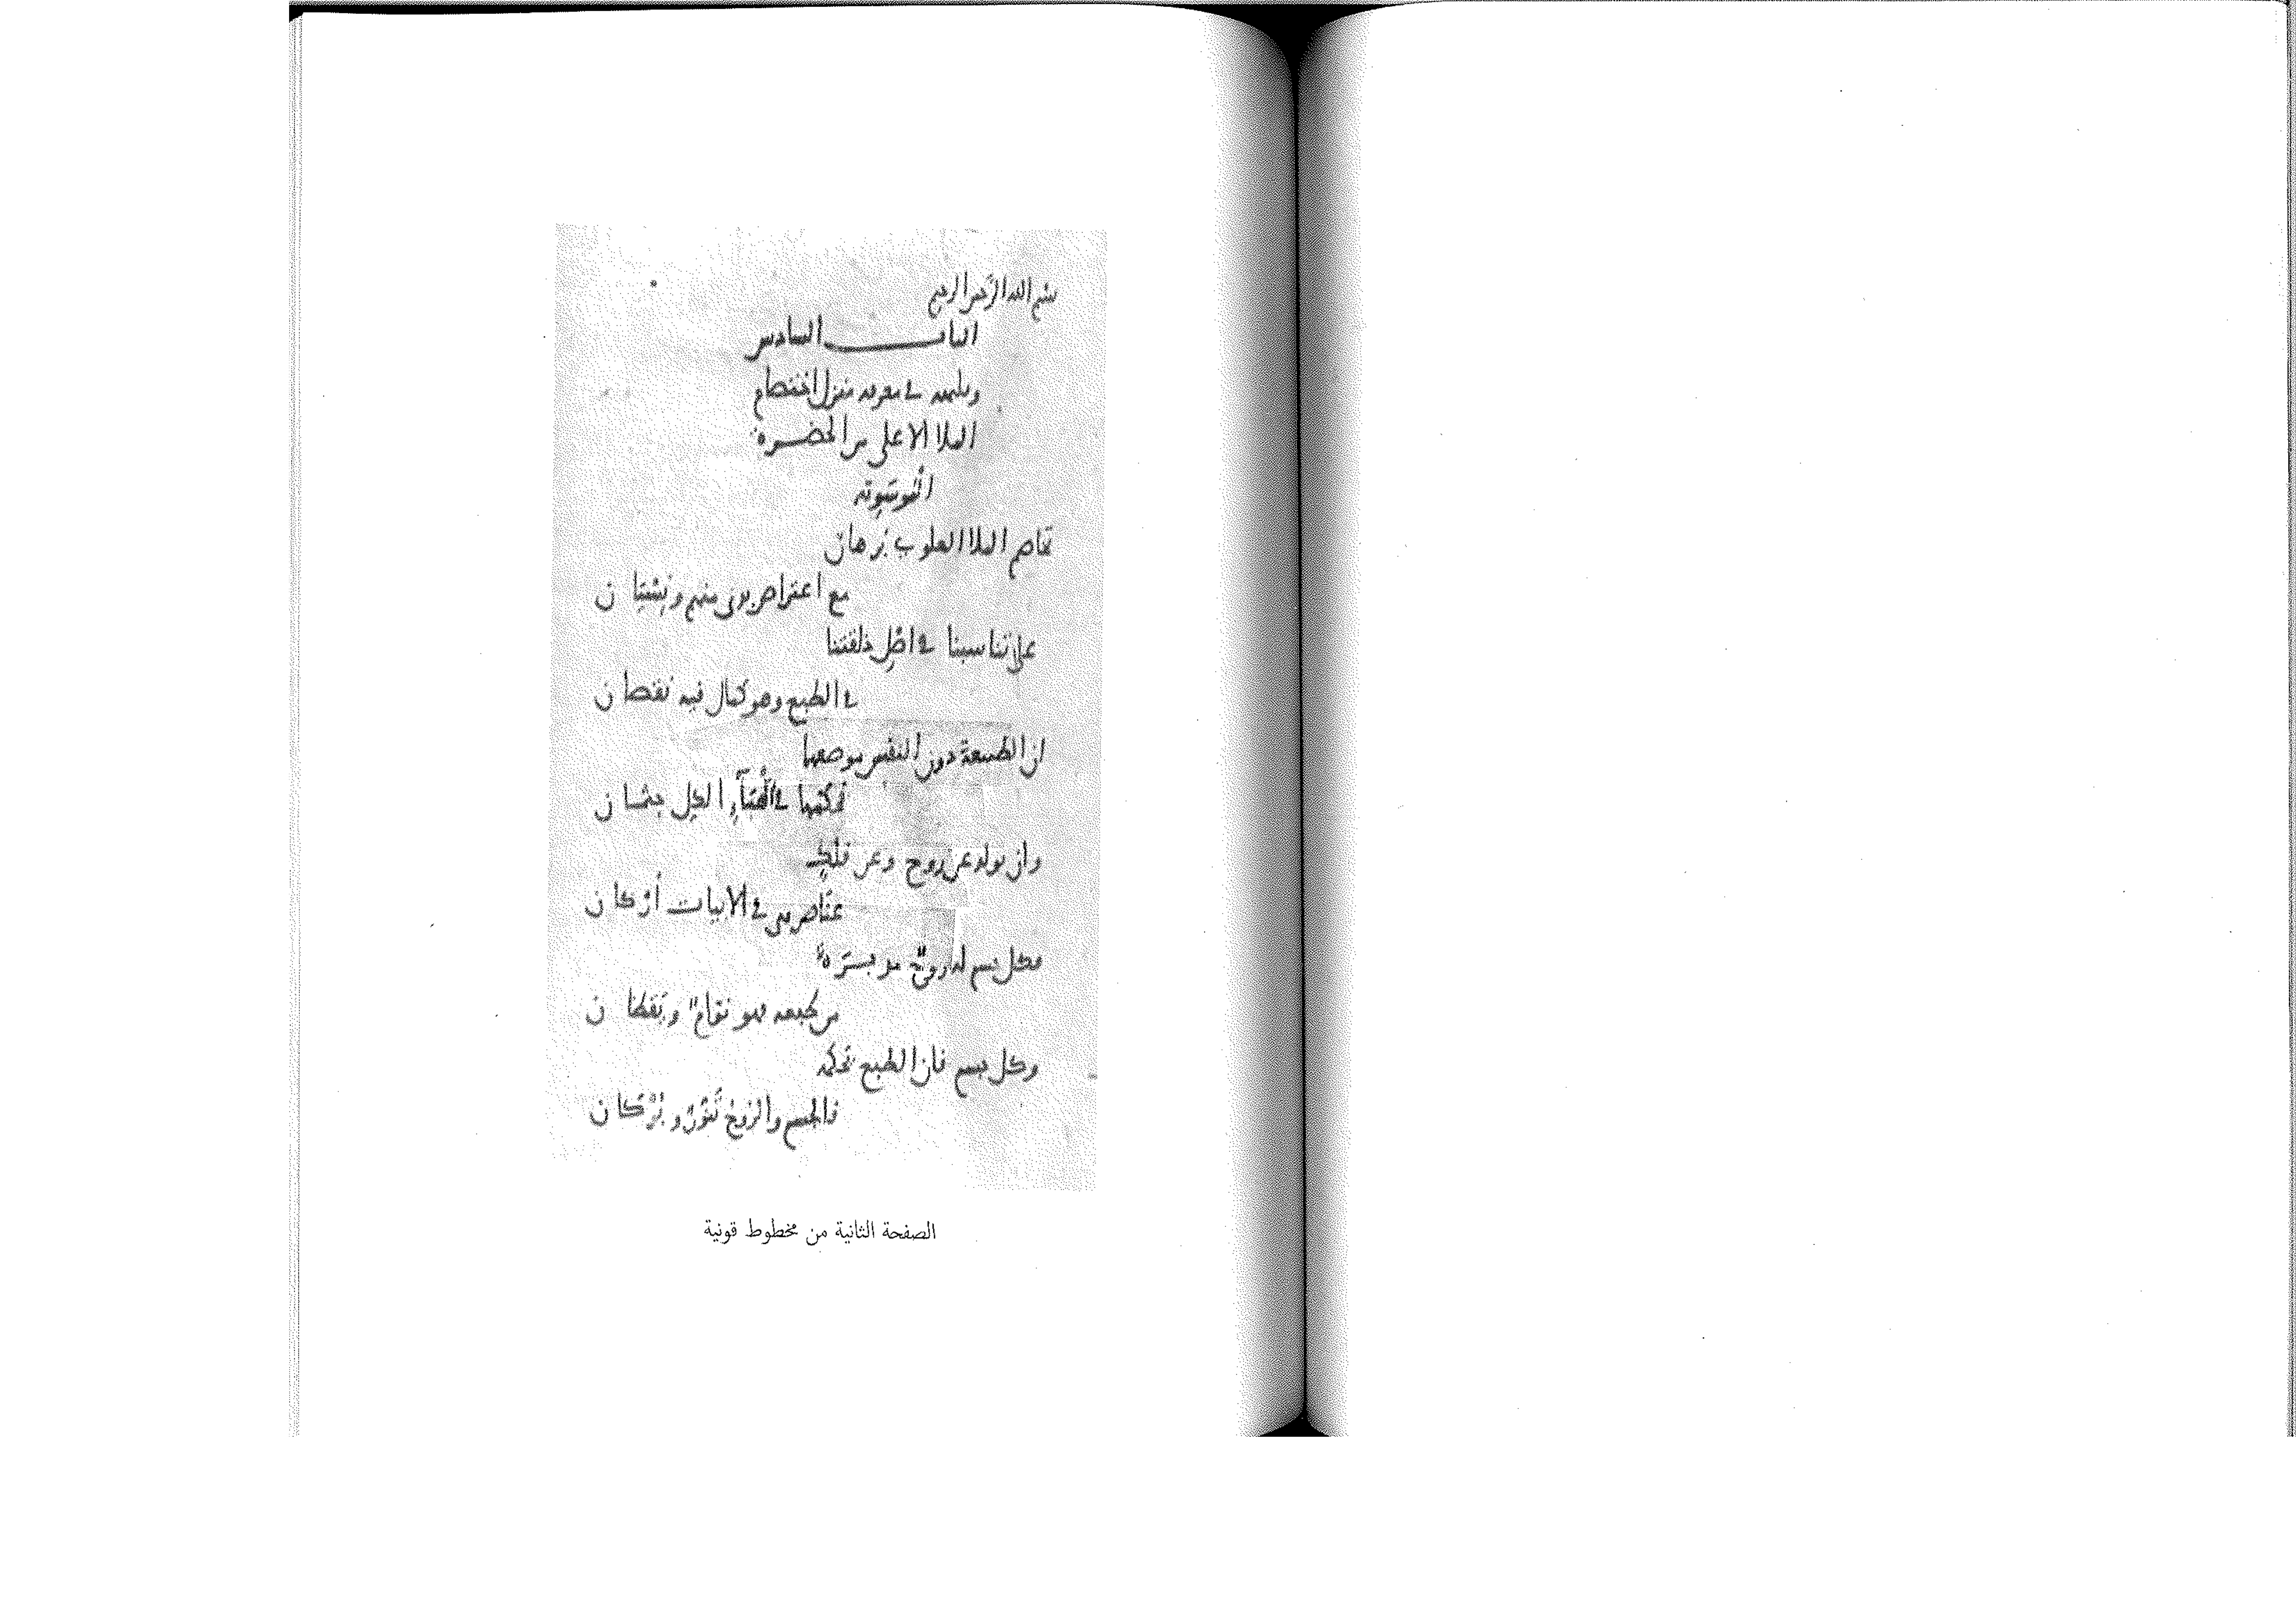 بسم الله الرحمن الرحيم
الباب السادس
وثلثمائة في معرفة منزل اختصام
الملا الاعلى من الحضرة
الموسوية
تخاصم الملا العلوي برهان
مع اعتراض بدى منهم ونسيان
على تناسبنا في اصل خلقتنا
في الطبع وهو كمال فيه نقصان
ان الطبيعة دون النفس موضعها
في الهباء الكل جثمان
وان تولد عن روح وعن فلك
عناصر هي في الابيات أركان
فكل جسم له روح مدبرة
من طبعه فهو نوام ويقظان
وكل جسم فان الطبع يحكمه
فالجسم والروح تنور وبركان
الصفحة الثانية من مخطوط قونية